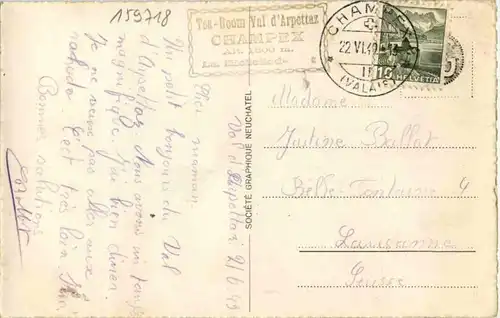 159718
Tea-Room Val d'Arpettaz
CHAMPEX
Alt. 1600 m.
CHAMPEX
22 VI 49
(VALAIS)
10 HELVETIA
Val d'Arpettaz 21/6 49
maman
Un petit bonjour du Val
d'Arpettaz. Nous avons un temps
magnifique. J'ai bien dîner.
Je ne peux pas aller aux
c'est très loin
Bonnes salutations
SOCIÉTÉ GRAPHIQUE NEUCHATEL
Madame
Justine Ballat
Belle-Fontaine 4
Lausanne
Suisse